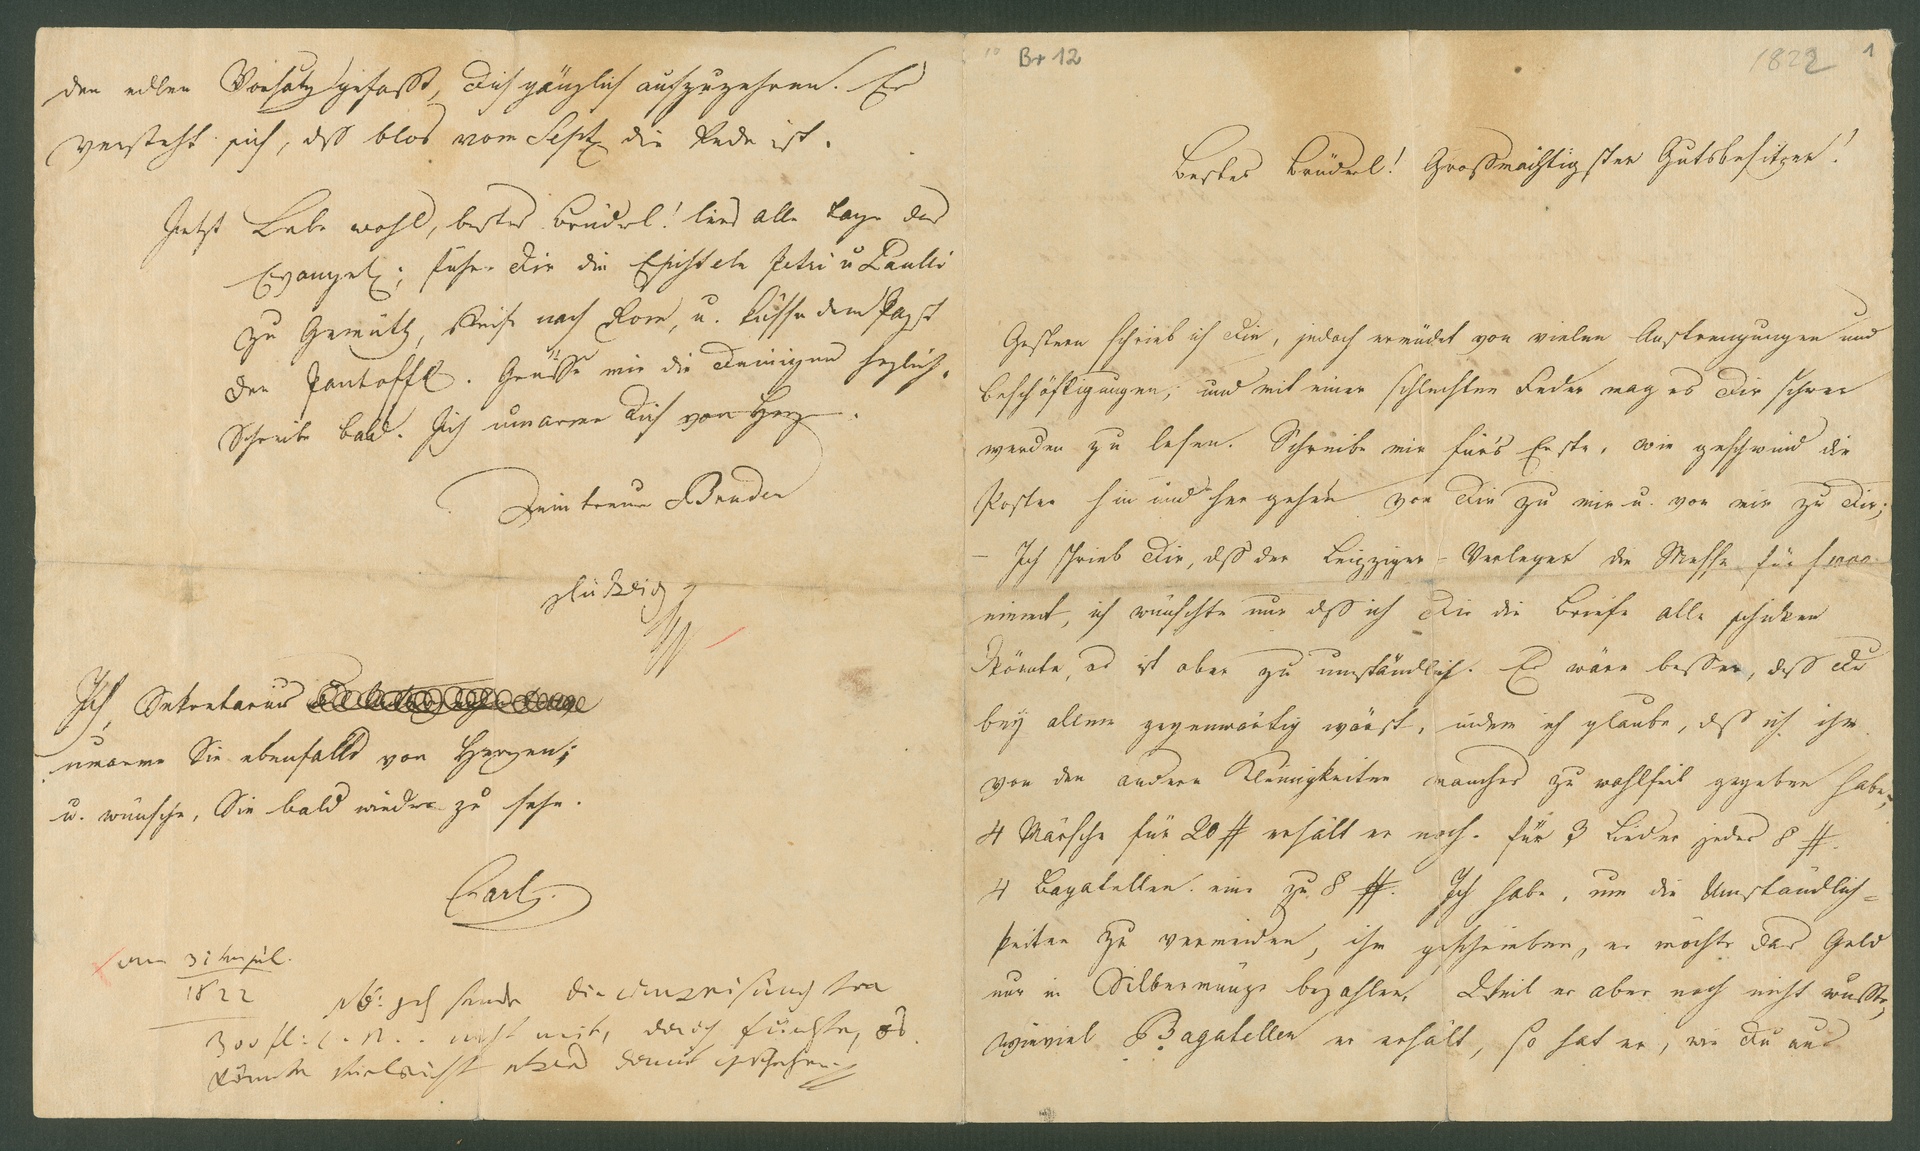 Br 12
1822
1
Bestes Brüderl! Großmächtigster Gutsbesitzer!
Gestern schrieb ich Dir, jedoch ermüdet von vielen Anstrengungen und
Beschäftigungen; und mit einer schlechten Feder mag es Dir schwer
werden zu lesen. Schreibe mir für's Erste, wie geschwind die
Posten hin und her gehen von Dir zu mir u. von mir zu Dir;
– Ich schrieb Dir, dß der Leipziger-Verleger die Messe für
nimmt, ich wünschte nur dß ich Dir die Briefe alle schicken
könnte, es ist aber zu umständlich. Es wäre besser, daß Du
bey allem gegenwärtig wärst, indem ich glaube, dß ich ihm
von den andern Kleinigkeiten manches zu wohlfeil gegeben habe,
4 Märsche für 20 # erhält er noch. für 3 Lieder jedes 8 #.
4 Bagatellen. eine zu 8 #. Ich habe, um die Umständlich-
keiten zu vermeiden, ihm geschrieben, er möchte das Geld
nur in Silbermünze bezahlen, Weil er aber noch nicht wußte,
wieviel Bagatellen er erhält, so hat er, wie Du aus
den edlen Vorsatz gefaßt, Dich gänzlich aufzuzehren. Es
versteht sich, dß blos vom Sept die Rede ist.
Jetzt Lebe wohl, bestes Brüderl! lies alle Tage das
Evangel; führe Dir die Episteln Petri u Paulli
zu Gemüth, Reise nach Rom, u. küsse dem Papst
den Pantoffl. Grüsse mir die Deinigen herzlich.
Schreibe bald. Ich umarme Dich von Herz.
Dein treuer Bruder
Ludwig
Ich, Sekretarius
umarme Sie ebenfalls von Herzen;
u. wünsche, Sie bald wieder zu sehn.
Carl.
am 31ten jul.
1822
Nb: ich sende die Anweisung der
300 fl: C. M. nicht mit, da ich fürchte, es
könnte vielleicht etwas damit geschehen